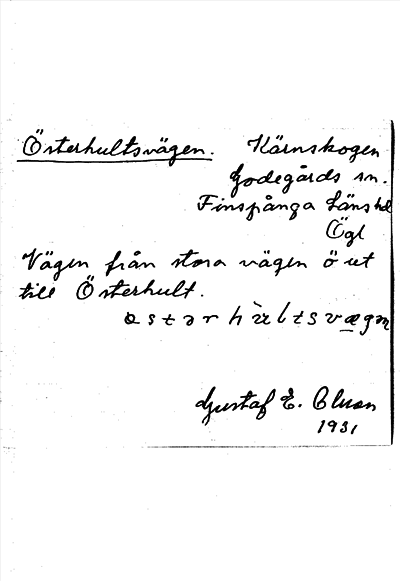 Österhultsvägen. Kärnskogen
Godegårds sn.
Finspånga Läns hd
Ögl
Vägen från stora vägen ö ut
till Österhult.
Gustaf E. Olson
1931